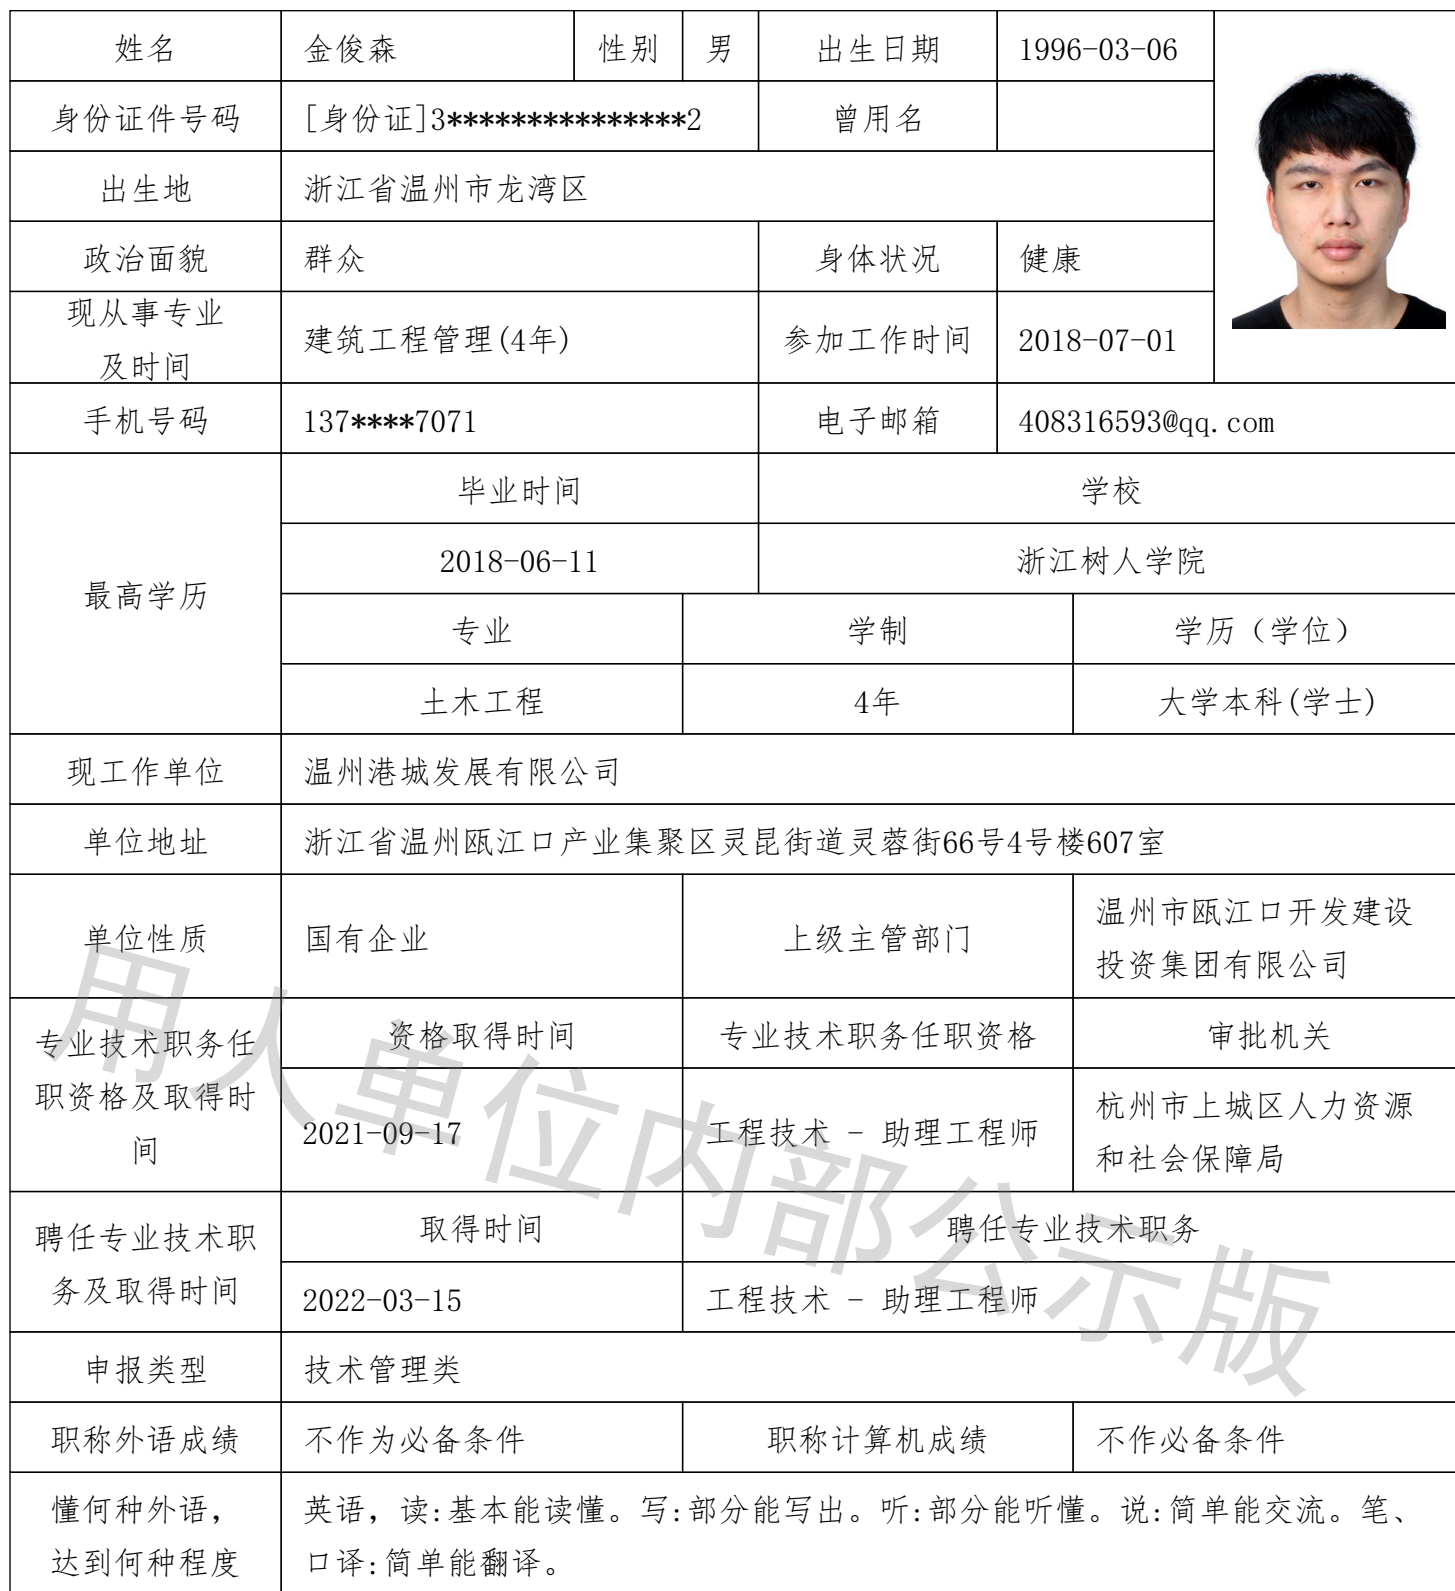 姓名 金俊森 性别 男 出生日期 1996-03-06
身份证件号码 [身份证]3***************2 曾用名
出生地 浙江省温州市龙湾区
政治面貌 群众 身体状况 健康
现从事专业
及时间 建筑工程管理(4年) 参加工作时间 2018-07-01
手机号码 137****7071 电子邮箱 408316593@qq.com
最高学历
毕业时间 学校
2018-06-11 浙江树人学院
专业 学制 学历（学位）
土木工程 4年 大学本科(学士)
现工作单位 温州港城发展有限公司
单位地址 浙江省温州瓯江口产业集聚区灵昆街道灵蓉街66号4号楼607室
单位性质 国有企业 上级主管部门 温州市瓯江口开发建设
投资集团有限公司
专业技术职务任
职资格及取得时
间
资格取得时间 专业技术职务任职资格 审批机关
2021-09-17 工程技术 - 助理工程师 杭州市上城区人力资源
和社会保障局
聘任专业技术职
务及取得时间
取得时间 聘任专业技术职务
2022-03-15 工程技术 - 助理工程师
申报类型 技术管理类
职称外语成绩 不作为必备条件 职称计算机成绩 不作必备条件
懂何种外语，
达到何种程度
英语，读:基本能读懂。写:部分能写出。听:部分能听懂。说:简单能交流。笔、
口译:简单能翻译。
用人单位内部公示版